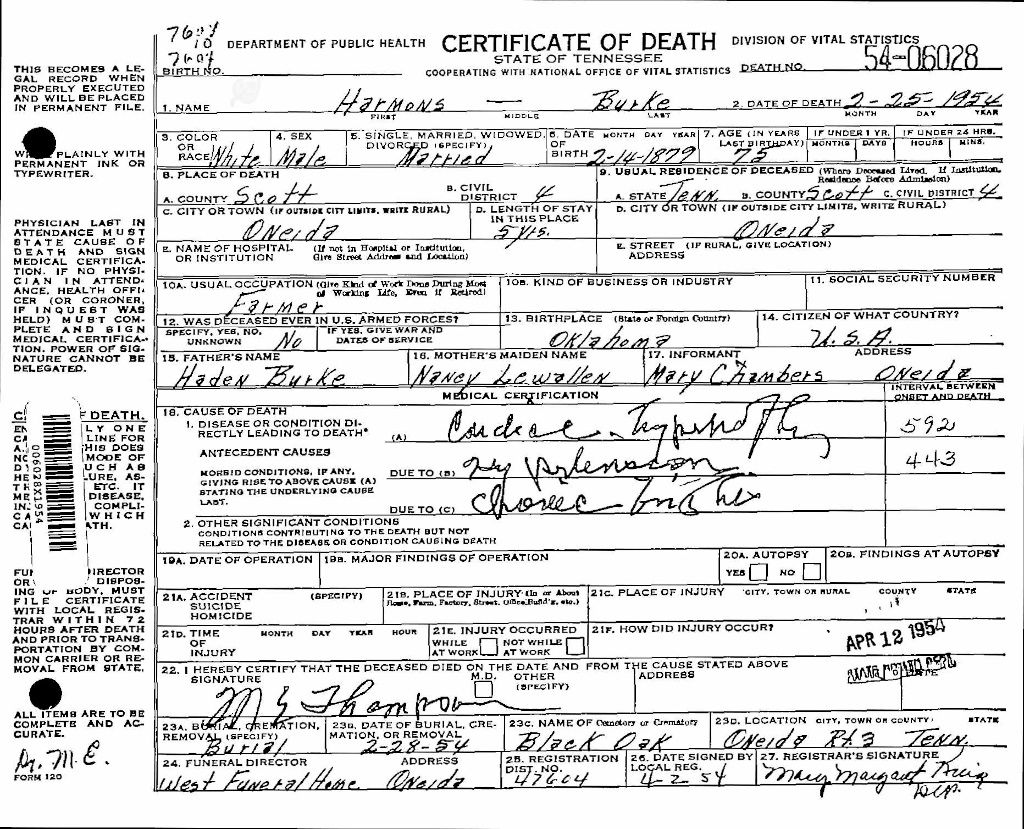 7604
10
7604
DEPARTMENT OF PUBLIC HEALTH CERTIFICATE OF DEATH DIVISION OF VITAL STATISTICS
STATE OF TENNESSEE
BIRTH NO. COOPERATING WITH NATIONAL OFFICE OF VITAL STATISTICS DEATH NO. 54-06028
THIS BECOMES A LE-
GAL RECORD WHEN
PROPERLY EXECUTED
AND WILL BE PLACED
IN PERMANENT FILE.
PLAINLY WITH
PERMANENT INK OR
TYPEWRITER.
PHYSICIAN LAST IN
ATTENDANCE MUST
STATE CAUSE OF
DEATH AND SIGN
MEDICAL CERTIFICA-
TION. IF NO PHYSI-
CIAN IN ATTEND-
ANCE, HEALTH OFFI-
CER (OR CORONER,
IF INQUEST WAS
HELD) MUST COM-
PLETE AND SIGN
MEDICAL CERTIFICA-
TION. POWER OF SIG-
NATURE CANNOT BE
DELEGATED.
DEATH.
LY ONE
LINE FOR
HIS DOES
MODE OF
UCH AS
LURE, AS-
ETC. IT
DISEASE,
COMPLI-
WHICH
ATH.
006028X1954
IRECTOR
DISPOS-
ING OF BODY, MUST
FILE CERTIFICATE
WITH LOCAL REGIS-
TRAR WITHIN 72
HOURS AFTER DEATH
AND PRIOR TO TRANS-
PORTATION BY COM-
MON CARRIER OR RE-
MOVAL FROM STATE.
ALL ITEMS ARE TO BE
COMPLETE AND AC-
CURATE.
M.E.
FORM 120
1. NAME Harmons — Burke 2. DATE OF DEATH 2-25-1954
FIRST MIDDLE LAST MONTH DAY YEAR
3. COLOR OR RACE White 4. SEX Male 5. SINGLE, MARRIED, WIDOWED, DIVORCED (SPECIFY) Married 6. DATE OF BIRTH MONTH DAY YEAR 2-14-1879 7. AGE (IN YEARS LAST BIRTHDAY) 75 IF UNDER 1 YR. MONTHS DAYS IF UNDER 24 HRS. HOURS MINS.
8. PLACE OF DEATH 9. USUAL RESIDENCE OF DECEASED (Where Deceased Lived. If Institution, Residence Before Admission)
A. COUNTY Scott B. CIVIL DISTRICT 4 A. STATE Tenn. B. COUNTY Scott C. CIVIL DISTRICT 4
C. CITY OR TOWN (IF OUTSIDE CITY LIMITS, WRITE RURAL) Oneida D. LENGTH OF STAY IN THIS PLACE 5 yrs. D. CITY OR TOWN (IF OUTSIDE CITY LIMITS, WRITE RURAL) Oneida
E. NAME OF HOSPITAL OR INSTITUTION (If not in Hospital or Institution, Give Street Address and Location) E. STREET ADDRESS (IF RURAL, GIVE LOCATION)
10A. USUAL OCCUPATION (Give Kind of Work Done During Most of Working Life, Even if Retired) Farmer 10B. KIND OF BUSINESS OR INDUSTRY 11. SOCIAL SECURITY NUMBER
12. WAS DECEASED EVER IN U.S. ARMED FORCES? SPECIFY, YES, NO, UNKNOWN No IF YES, GIVE WAR AND DATES OF SERVICE 13. BIRTHPLACE (State or Foreign Country) Oklahoma 14. CITIZEN OF WHAT COUNTRY? U.S.A.
15. FATHER'S NAME Haden Burke 16. MOTHER'S MAIDEN NAME Nancy Lewallen 17. INFORMANT Mary Chambers ADDRESS Oneida
MEDICAL CERTIFICATION INTERVAL BETWEEN ONSET AND DEATH
18. CAUSE OF DEATH
1. DISEASE OR CONDITION DI-
RECTLY LEADING TO DEATH* (A) Cardiac Hypertrophy 592
ANTECEDENT CAUSES
MORBID CONDITIONS, IF ANY, GIVING RISE TO ABOVE CAUSE (A) STATING THE UNDERLYING CAUSE LAST.
DUE TO (B) Hypertension 443
DUE TO (C) Chronic
2. OTHER SIGNIFICANT CONDITIONS
CONDITIONS CONTRIBUTING TO THE DEATH BUT NOT
RELATED TO THE DISEASE OR CONDITION CAUSING DEATH
19A. DATE OF OPERATION 19B. MAJOR FINDINGS OF OPERATION 20A. AUTOPSY YES NO 20B. FINDINGS AT AUTOPSY
21A. ACCIDENT SUICIDE HOMICIDE (SPECIFY) 21B. PLACE OF INJURY (In or About Home, Farm, Factory, Street, Office Build'g, etc.) 21C. PLACE OF INJURY CITY, TOWN OR RURAL COUNTY STATE
21D. TIME OF INJURY MONTH DAY YEAR HOUR 21E. INJURY OCCURRED WHILE AT WORK NOT WHILE AT WORK 21F. HOW DID INJURY OCCUR?
APR 12 1954
22. I HEREBY CERTIFY THAT THE DECEASED DIED ON THE DATE AND FROM THE CAUSE STATED ABOVE
SIGNATURE M E Thompson M.D. OTHER (SPECIFY) ADDRESS
23A. BURIAL, CREMATION, REMOVAL (SPECIFY) Burial 23B. DATE OF BURIAL, CRE-MATION, OR REMOVAL 2-28-54 23C. NAME OF Cemetery or Crematory Black Oak 23D. LOCATION CITY, TOWN OR COUNTY STATE Oneida Rt. 3 Tenn.
24. FUNERAL DIRECTOR ADDRESS West Funeral Home Oneida 25. REGISTRATION DIST. NO. 47604 26. DATE SIGNED BY LOCAL REG. 4-2-54 27. REGISTRAR'S SIGNATURE Mary Margaret